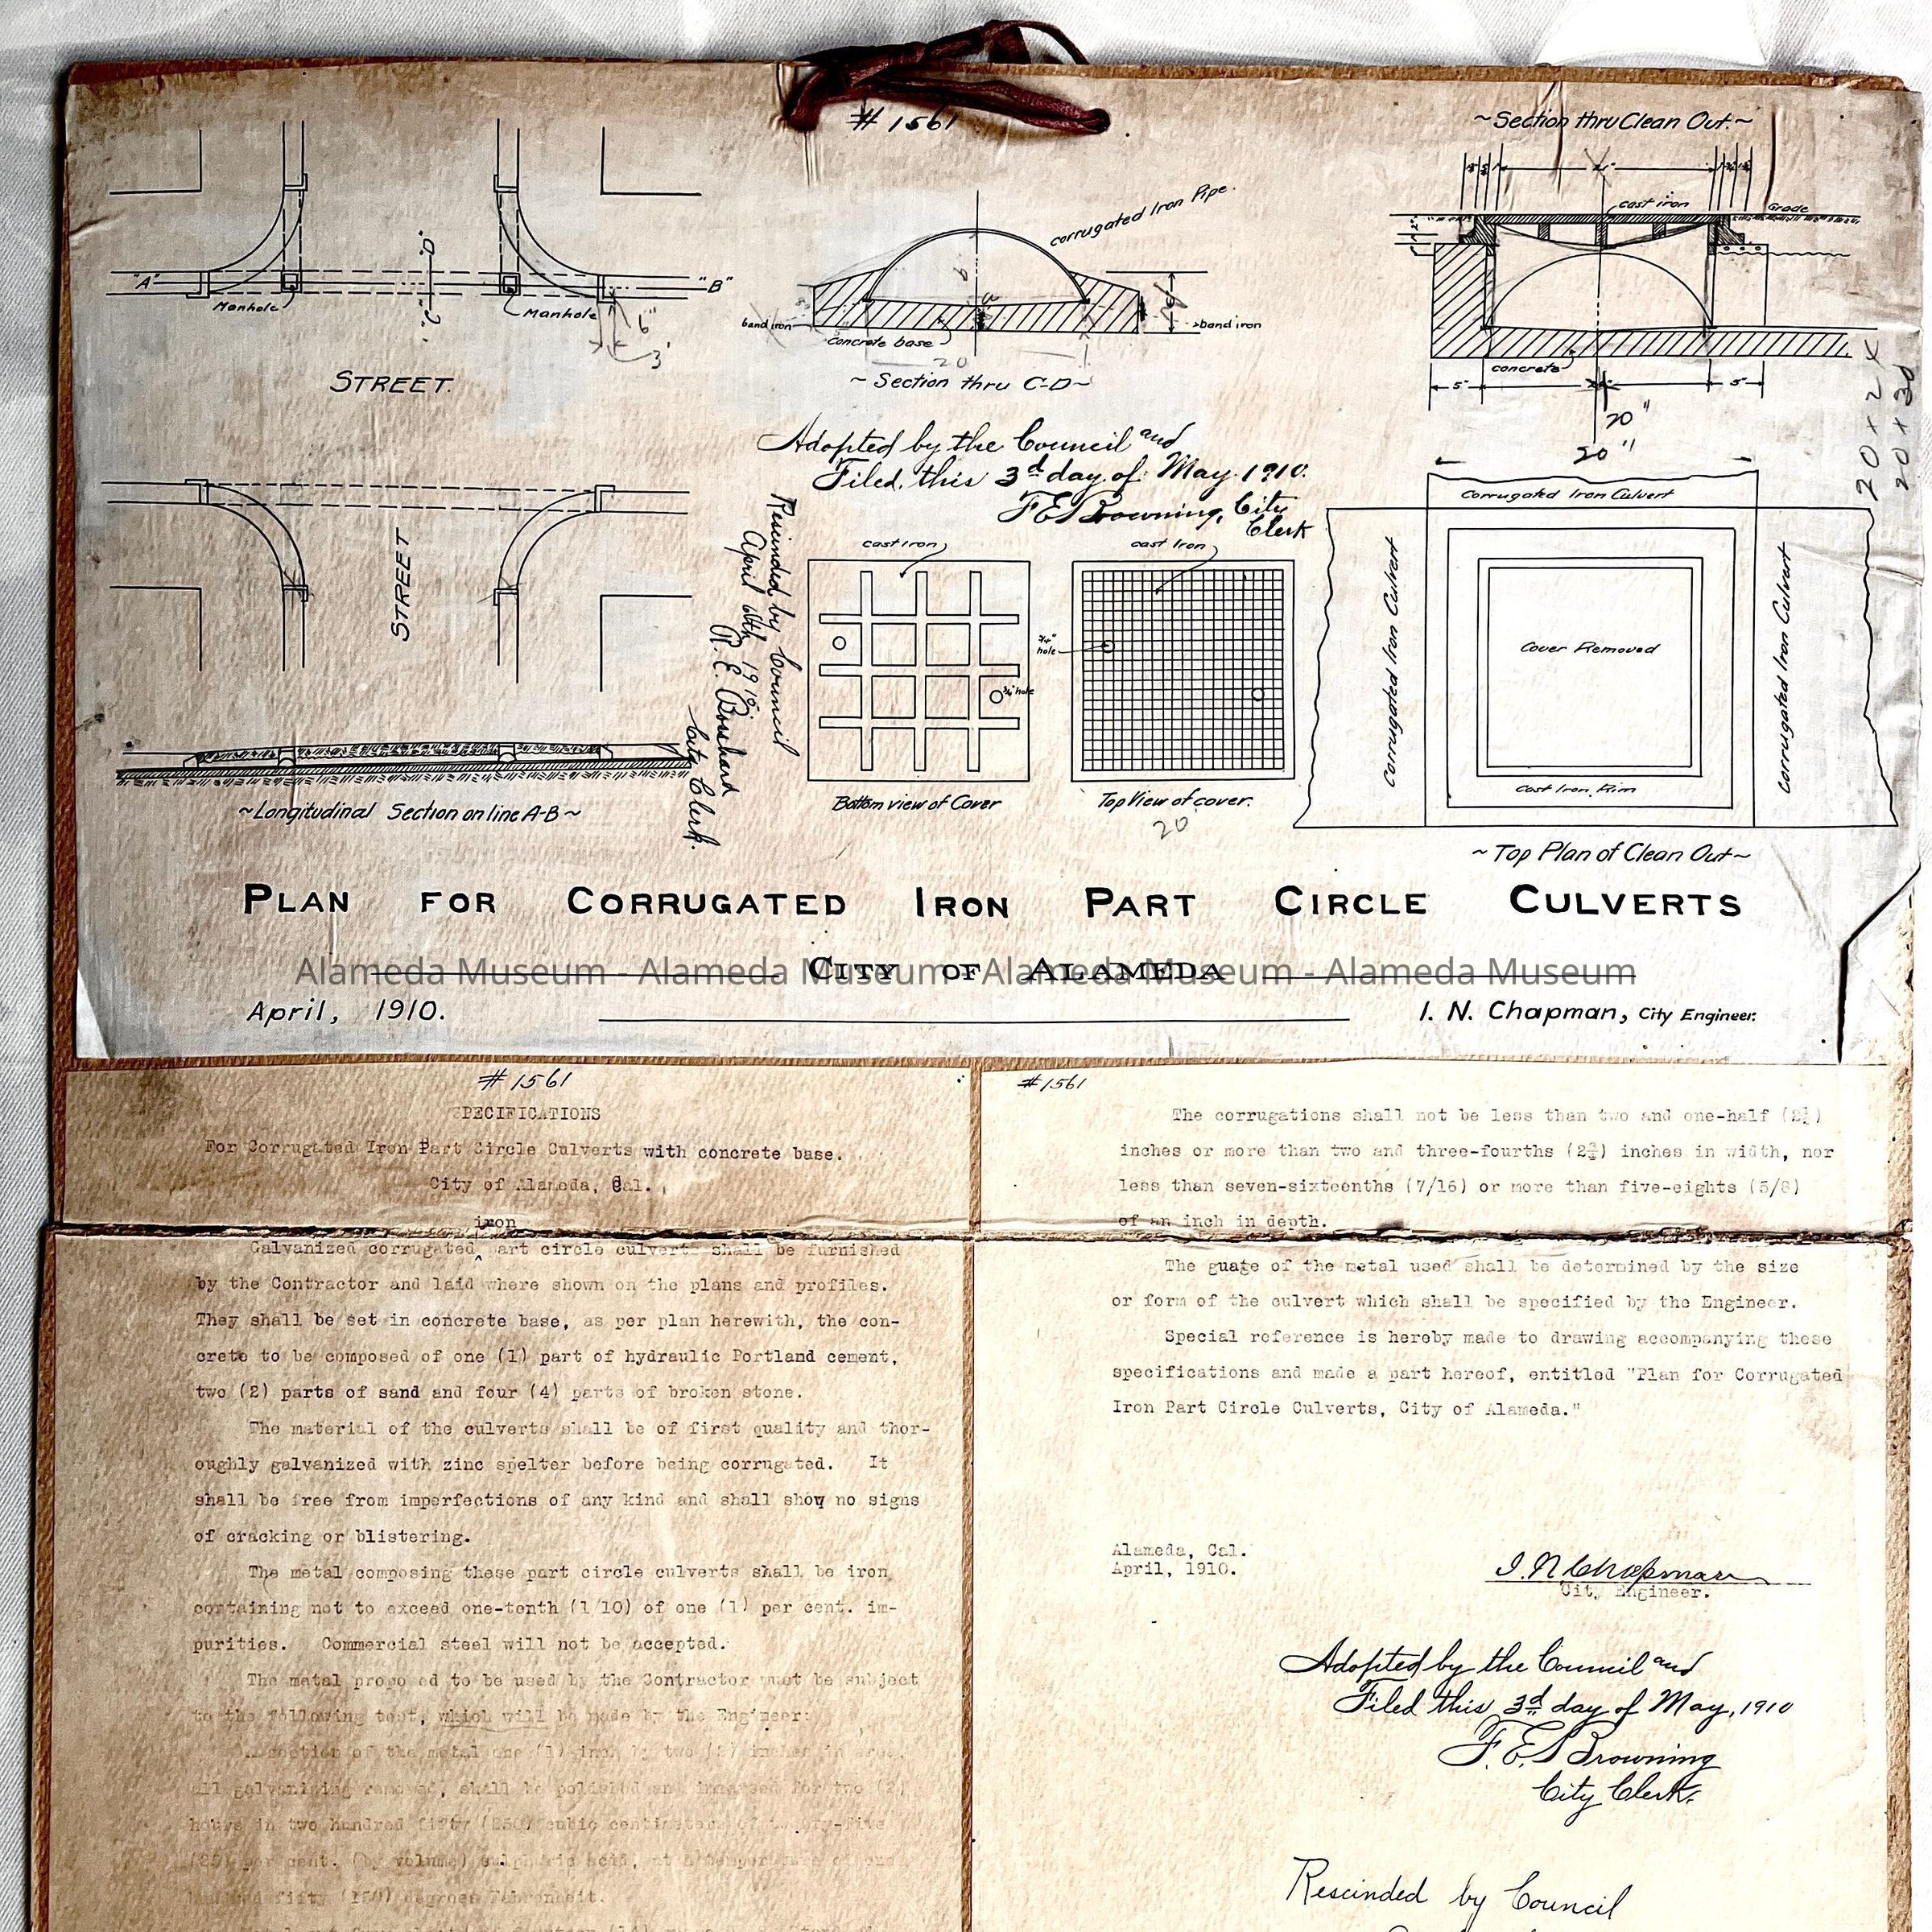 # 1561
~Section thru Clean Out.~
cast iron
Grade
corrugated Iron Pipe.
"A"
"B"
"D"
"C"
Manhole
Manhole
6"
3'
band iron
band iron
concrete base
20
~ Section thru C-D ~
concrete
5"
5"
20"
20"
STREET.
STREET
20 x 2
20 x 30
Adopted by the Council and
Filed this 3d day of May 1910.
F E Browning, City
Clerk
Rescinded by Council
April
R. E. Bosshard
City Clerk.
cast iron
cast Iron
3/4" hole
3/4" hole
Corrugated Iron Culvert
Corrugated Iron Culvert
Corrugated Iron Culvert
Cover Removed
Cast Iron Rim
~Longitudinal Section on line A-B~
Bottom view of Cover
Top View of cover.
20
~ Top Plan of Clean Out ~
PLAN FOR CORRUGATED IRON PART CIRCLE CULVERTS
CITY OF ALAMEDA
Alameda Museum - Alameda Museum - Alameda Museum - Alameda Museum
April, 1910.
I. N. Chapman, City Engineer.
# 1561
SPECIFICATIONS
For Corrugated Iron Part Circle Culverts with concrete base.
City of Alameda, Cal.
iron
Galvanized corrugated part circle culverts shall be furnished
by the Contractor and laid where shown on the plans and profiles.
They shall be set in concrete base, as per plan herewith, the con-
crete to be composed of one (1) part of hydraulic Portland cement,
two (2) parts of sand and four (4) parts of broken stone.
The material of the culverts shall be of first quality and thor-
oughly galvanized with zinc spelter before being corrugated. It
shall be free from imperfections of any kind and shall show no signs
of cracking or blistering.
The metal composing these part circle culverts shall be iron
containing not to exceed one-tenth (1/10) of one (1) per cent. im-
purities. Commercial steel will not be accepted.
The metal proposed to be used by the Contractor must be subject
to the following test, which will be made by the Engineer:
A section of the metal one (1) inch by two (2) inches in area,
all galvanizing removed, shall be polished and immersed for two (2)
hours in two hundred fifty (250) cubic centimeters of twenty-five
(25) per cent. (by volume) sulphuric acid, at a temperature of one
hundred fifty (150) degrees Fahrenheit.
# 1561
The corrugations shall not be less than two and one-half (2½)
inches or more than two and three-fourths (2¾) inches in width, nor
less than seven-sixteenths (7/16) or more than five-eights (5/8)
of an inch in depth.
The guage of the metal used shall be determined by the size
or form of the culvert which shall be specified by the Engineer.
Special reference is hereby made to drawing accompanying these
specifications and made a part hereof, entitled "Plan for Corrugated
Iron Part Circle Culverts, City of Alameda."
Alameda, Cal.
April, 1910.
I. N. Chapman
City Engineer.
Adopted by the Council and
Filed this 3d day of May, 1910
F. E. Browning
City Clerk.
Rescinded by Council